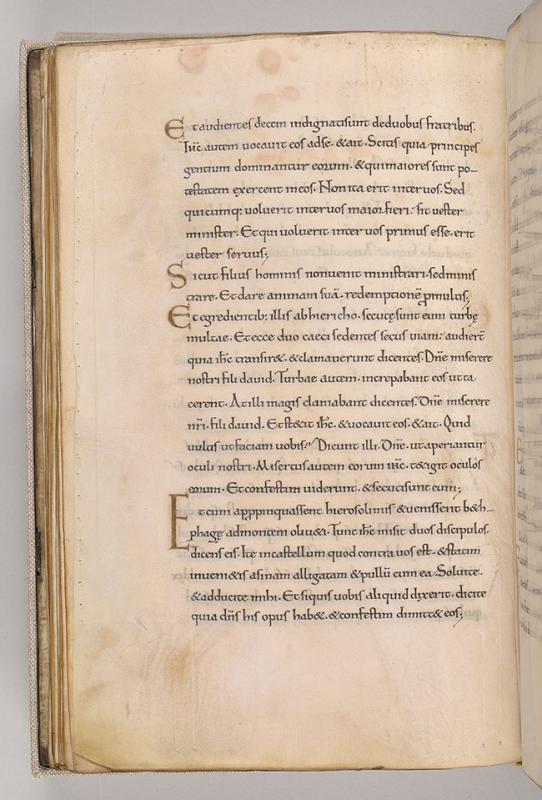 Et audientes decem indignatisunt deduobus fratribus.
Ihc autem uocauit eos adse. &ait. Scitis quia principes
gentium dominantur eorum. &quimaiores sunt po-
testatem exercent ineos. Nonita erit interuos. Sed
quicumq; uoluerit interuos maior fieri. sit uester
minister. Et qui uoluerit inter uos primus esse. erit
uester seruus;
Sicut filius hominis nonuenit ministrari. sedminis
trare. Et dare animam suā. redemptionē pmultis;
Et egredientib; illis abhiericho. secutęsunt eum turbę
multae. Et ecce duo caeci sedentes secus uiam. audierт̄
quia ihc transir&. &clamauerunt dicentes. Dnē miserere
nostri fili dauid. Turbae autem increpabant eos utta
cerent. Atilli magis clamabant dicentes. Dnē miserere
nri. fili dauid. Etst&it ihc. &uocauit eos. &ait. Quid
uultis utfaciam uobis? Dicunt illi. Dnē. utaperiantur
oculi nostri. Misertus autem eorum ihc. t&igit oculos
eorum. Etconfestim uiderunt. &secutisunt eum;
Et cum appropinquassent hierosolimis &uenissent b&h-
phage admontem oliu&i. Tunc ihc misit duos discipulos.
dicens eis. Ite incastellum quod contra uos est. &statim
inueni&is asinam alligatam &pullū cum ea. Soluite.
&adducite mihi. Etsiquis uobis aliquid dixerit. dicite
quia dns his opus hab&. &confestim dimitt& eos;